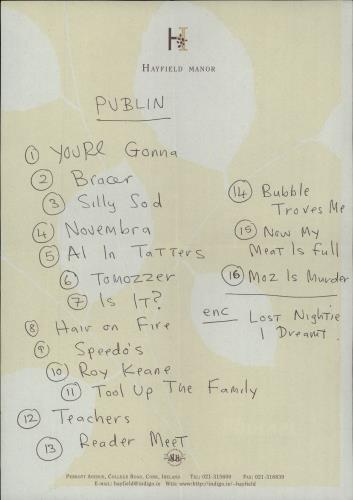 H
HAYFIELD MANOR
PUBLIN
1 YOU'RE Gonna
2 Bracer
3 Silly Sod
4 Novembra
5 Al In Tatters
6 Tomozzer
7 Is It?
8 Hair on Fire
9 Speedo's
10 Roy Keane
11 Tool Up The Family
12 Teachers
13 Reader Meet
14 Bubble
Troves Me
15 Now My
Meat Is Full
16 Moz Is Murder
enc Lost Nightie
I Dreamt.
PERROTT AVENUE, COLLEGE ROAD, CORK, IRELAND TEL: 021-315600 FAX: 021-316839
E-MAIL: hayfield@indigo.ie WEB: www:http//indigo.ie/~hayfield